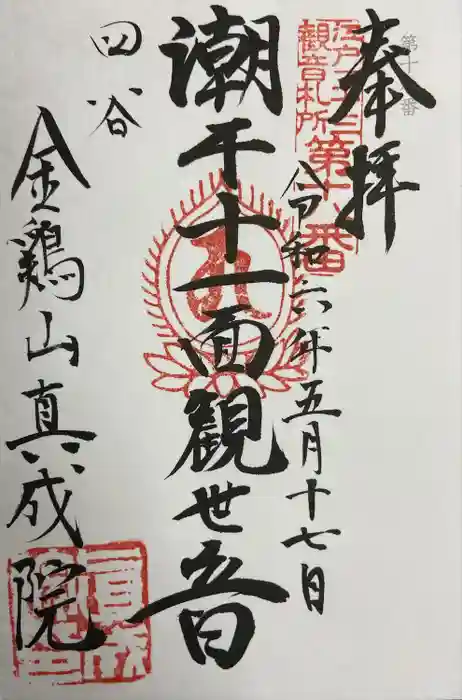 奉拝
第十八番
江戸三十三
観音札所
第十八番
令和六年五月十七日
潮干十一面観世音
四谷
金鶏山真成院